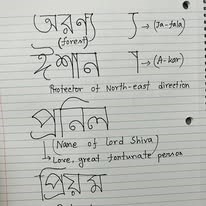 অরন্য  ⟶ (Ja-fala)
(forest)
ঈশান া → (A-kar)
Protector of North-east direction
প্রনিল
Name of Lord Shiva
Love, great fortunate person
প্রিয়ম